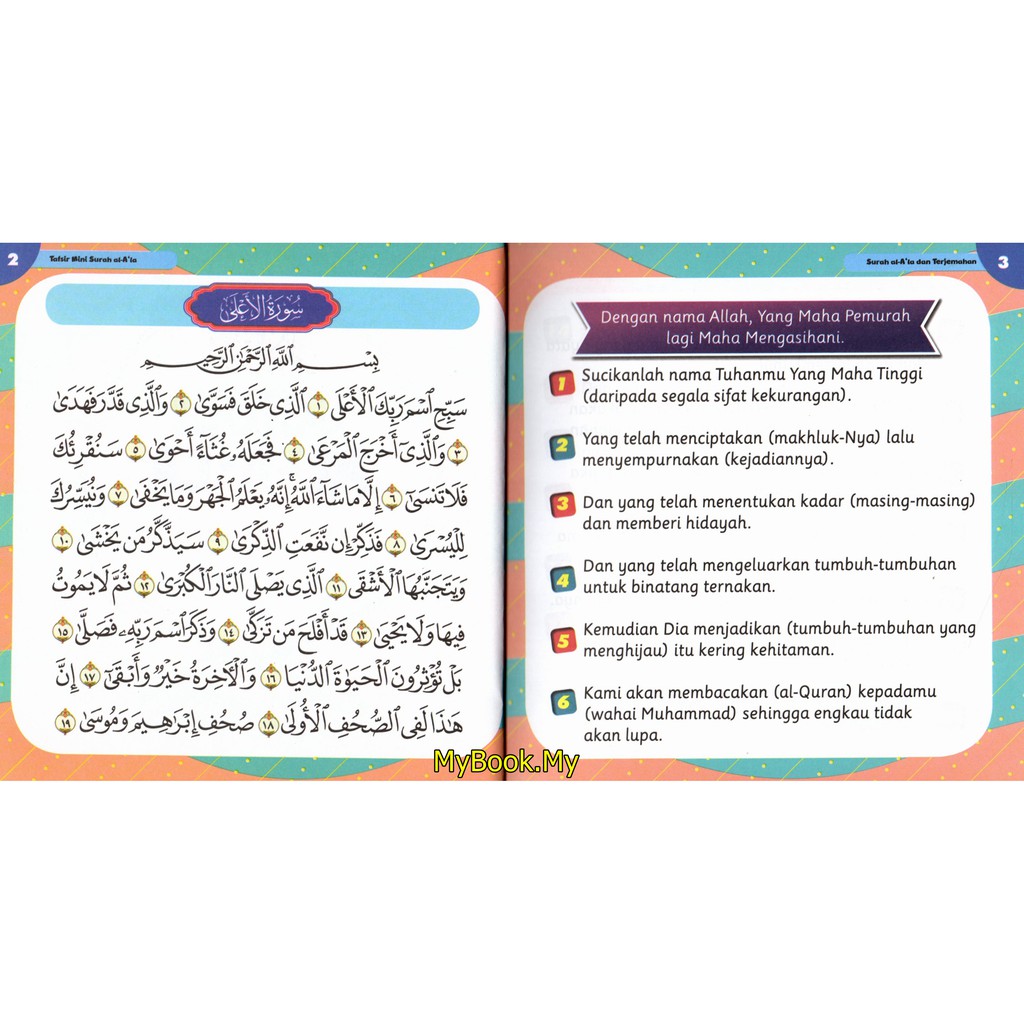 2
Tafsir Mini Surah al-A'la
سُورَةُ الأَعْلَى
بِسْمِ ٱللَّهِ ٱلرَّحْمَٰنِ ٱلرَّحِيمِ
سَبِّحِ ٱسْمَ رَبِّكَ ٱلْأَعْلَى ١ ٱلَّذِى خَلَقَ فَسَوَّىٰ ٢ وَٱلَّذِى قَدَّرَ فَهَدَىٰ
٣ وَٱلَّذِىٓ أَخْرَجَ ٱلْمَرْعَىٰ ٤ فَجَعَلَهُۥ غُثَآءً أَحْوَىٰ ٥ سَنُقْرِئُكَ
فَلَا تَنسَىٰٓ ٦ إِلَّا مَا شَآءَ ٱللَّهُ ۚ إِنَّهُۥ يَعْلَمُ ٱلْجَهْرَ وَمَا يَخْفَىٰ ٧ وَنُيَسِّرُكَ
لِلْيُسْرَىٰ ٨ فَذَكِّرْ إِن نَّفَعَتِ ٱلذِّكْرَىٰ ٩ سَيَذَّكَّرُ مَن يَخْشَىٰ ١٠
وَيَتَجَنَّبُهَا ٱلْأَشْقَى ١١ ٱلَّذِى يَصْلَى ٱلنَّارَ ٱلْكُبْرَىٰ ١٢ ثُمَّ لَا يَمُوتُ
فِيهَا وَلَا يَحْيَىٰ ١٣ قَدْ أَفْلَحَ مَن تَزَكَّىٰ ١٤ وَذَكَرَ ٱسْمَ رَبِّهِۦ فَصَلَّىٰ ١٥
بَلْ تُؤْثِرُونَ ٱلْحَيَوٰةَ ٱلدُّنْيَا ١٦ وَٱلْأَخِرَةُ خَيْرٌ وَأَبْقَىٰٓ ١٧ إِنَّ
هَٰذَا لَفِى ٱلصُّحُفِ ٱلْأُولَىٰ ١٨ صُحُفِ إِبْرَٰهِيمَ وَمُوسَىٰ ١٩
Surah al-A'la dan Terjemahan
3
Dengan nama Allah, Yang Maha Pemurah
lagi Maha Mengasihani.
1 Sucikanlah nama Tuhanmu Yang Maha Tinggi
(daripada segala sifat kekurangan).
2 Yang telah menciptakan (makhluk-Nya) lalu
menyempurnakan (kejadiannya).
3 Dan yang telah menentukan kadar (masing-masing)
dan memberi hidayah.
4 Dan yang telah mengeluarkan tumbuh-tumbuhan
untuk binatang ternakan.
5 Kemudian Dia menjadikan (tumbuh-tumbuhan yang
menghijau) itu kering kehitaman.
6 Kami akan membacakan (al-Quran) kepadamu
(wahai Muhammad) sehingga engkau tidak
akan lupa.
MyBook.My